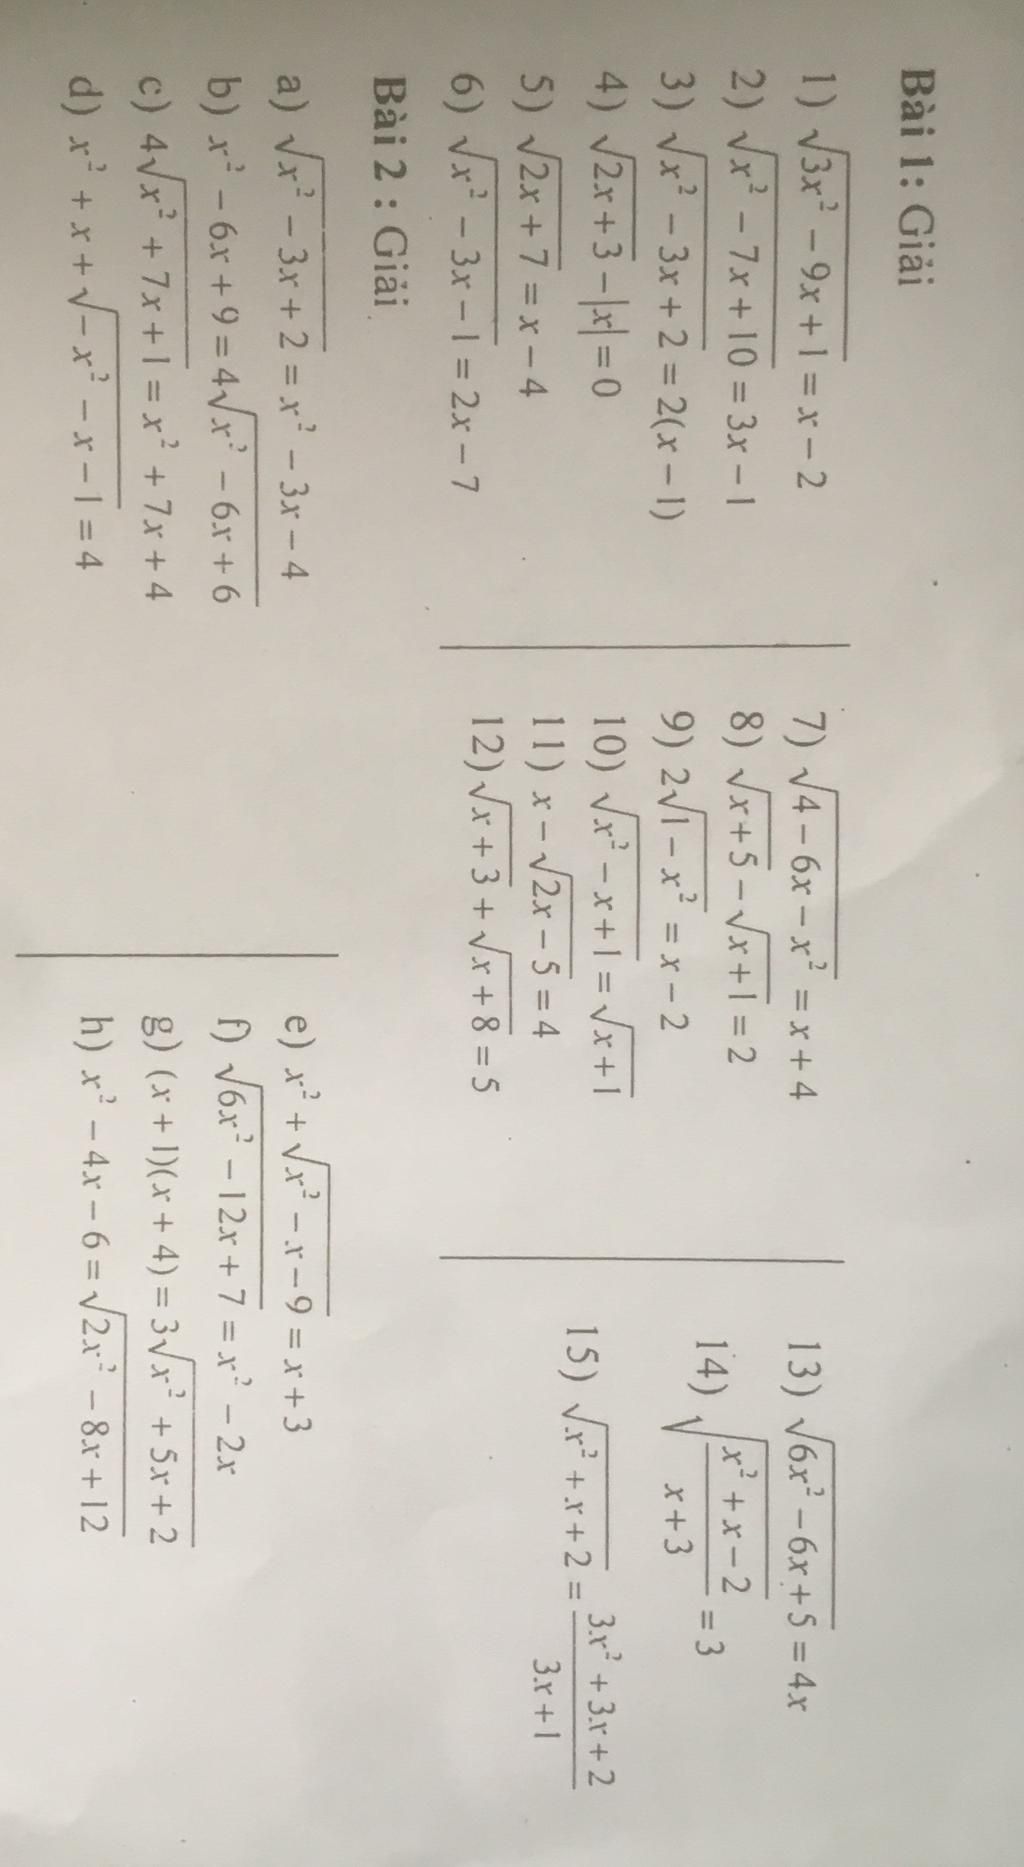 Bài 1: Giải
1) √(3x² − 9x + 1) = x − 2
2) √(x² − 7x + 10) = 3x − 1
3) √(x² − 3x + 2) = 2(x − 1)
4) √(2x + 3) − |x| = 0
5) √(2x + 7) = x − 4
6) √(x² − 3x − 1) = 2x − 7
7) √(4 − 6x − x²) = x + 4
8) √(x + 5) − √(x + 1) = 2
9) 2√(1 − x²) = x − 2
10) √(x² − x + 1) = √(x + 1)
11) x − √(2x − 5) = 4
12) √(x + 3) + √(x + 8) = 5
13) √(6x² − 6x + 5) = 4x
14) √((x² + x − 2)/(x + 3)) = 3
15) √(x² + x + 2) = (3x² + 3x + 2)/(3x + 1)
Bài 2 : Giải
a) √(x² − 3x + 2) = x² − 3x − 4
b) x² − 6x + 9 = 4√(x² − 6x + 6)
c) 4√(x² + 7x + 1) = x² + 7x + 4
d) x² + x + √(−x² − x − 1) = 4
e) x² + √(x² − x − 9) = x + 3
f) √(6x² − 12x + 7) = x² − 2x
g) (x + 1)(x + 4) = 3√(x² + 5x + 2)
h) x² − 4x − 6 = √(2x² − 8x + 12)